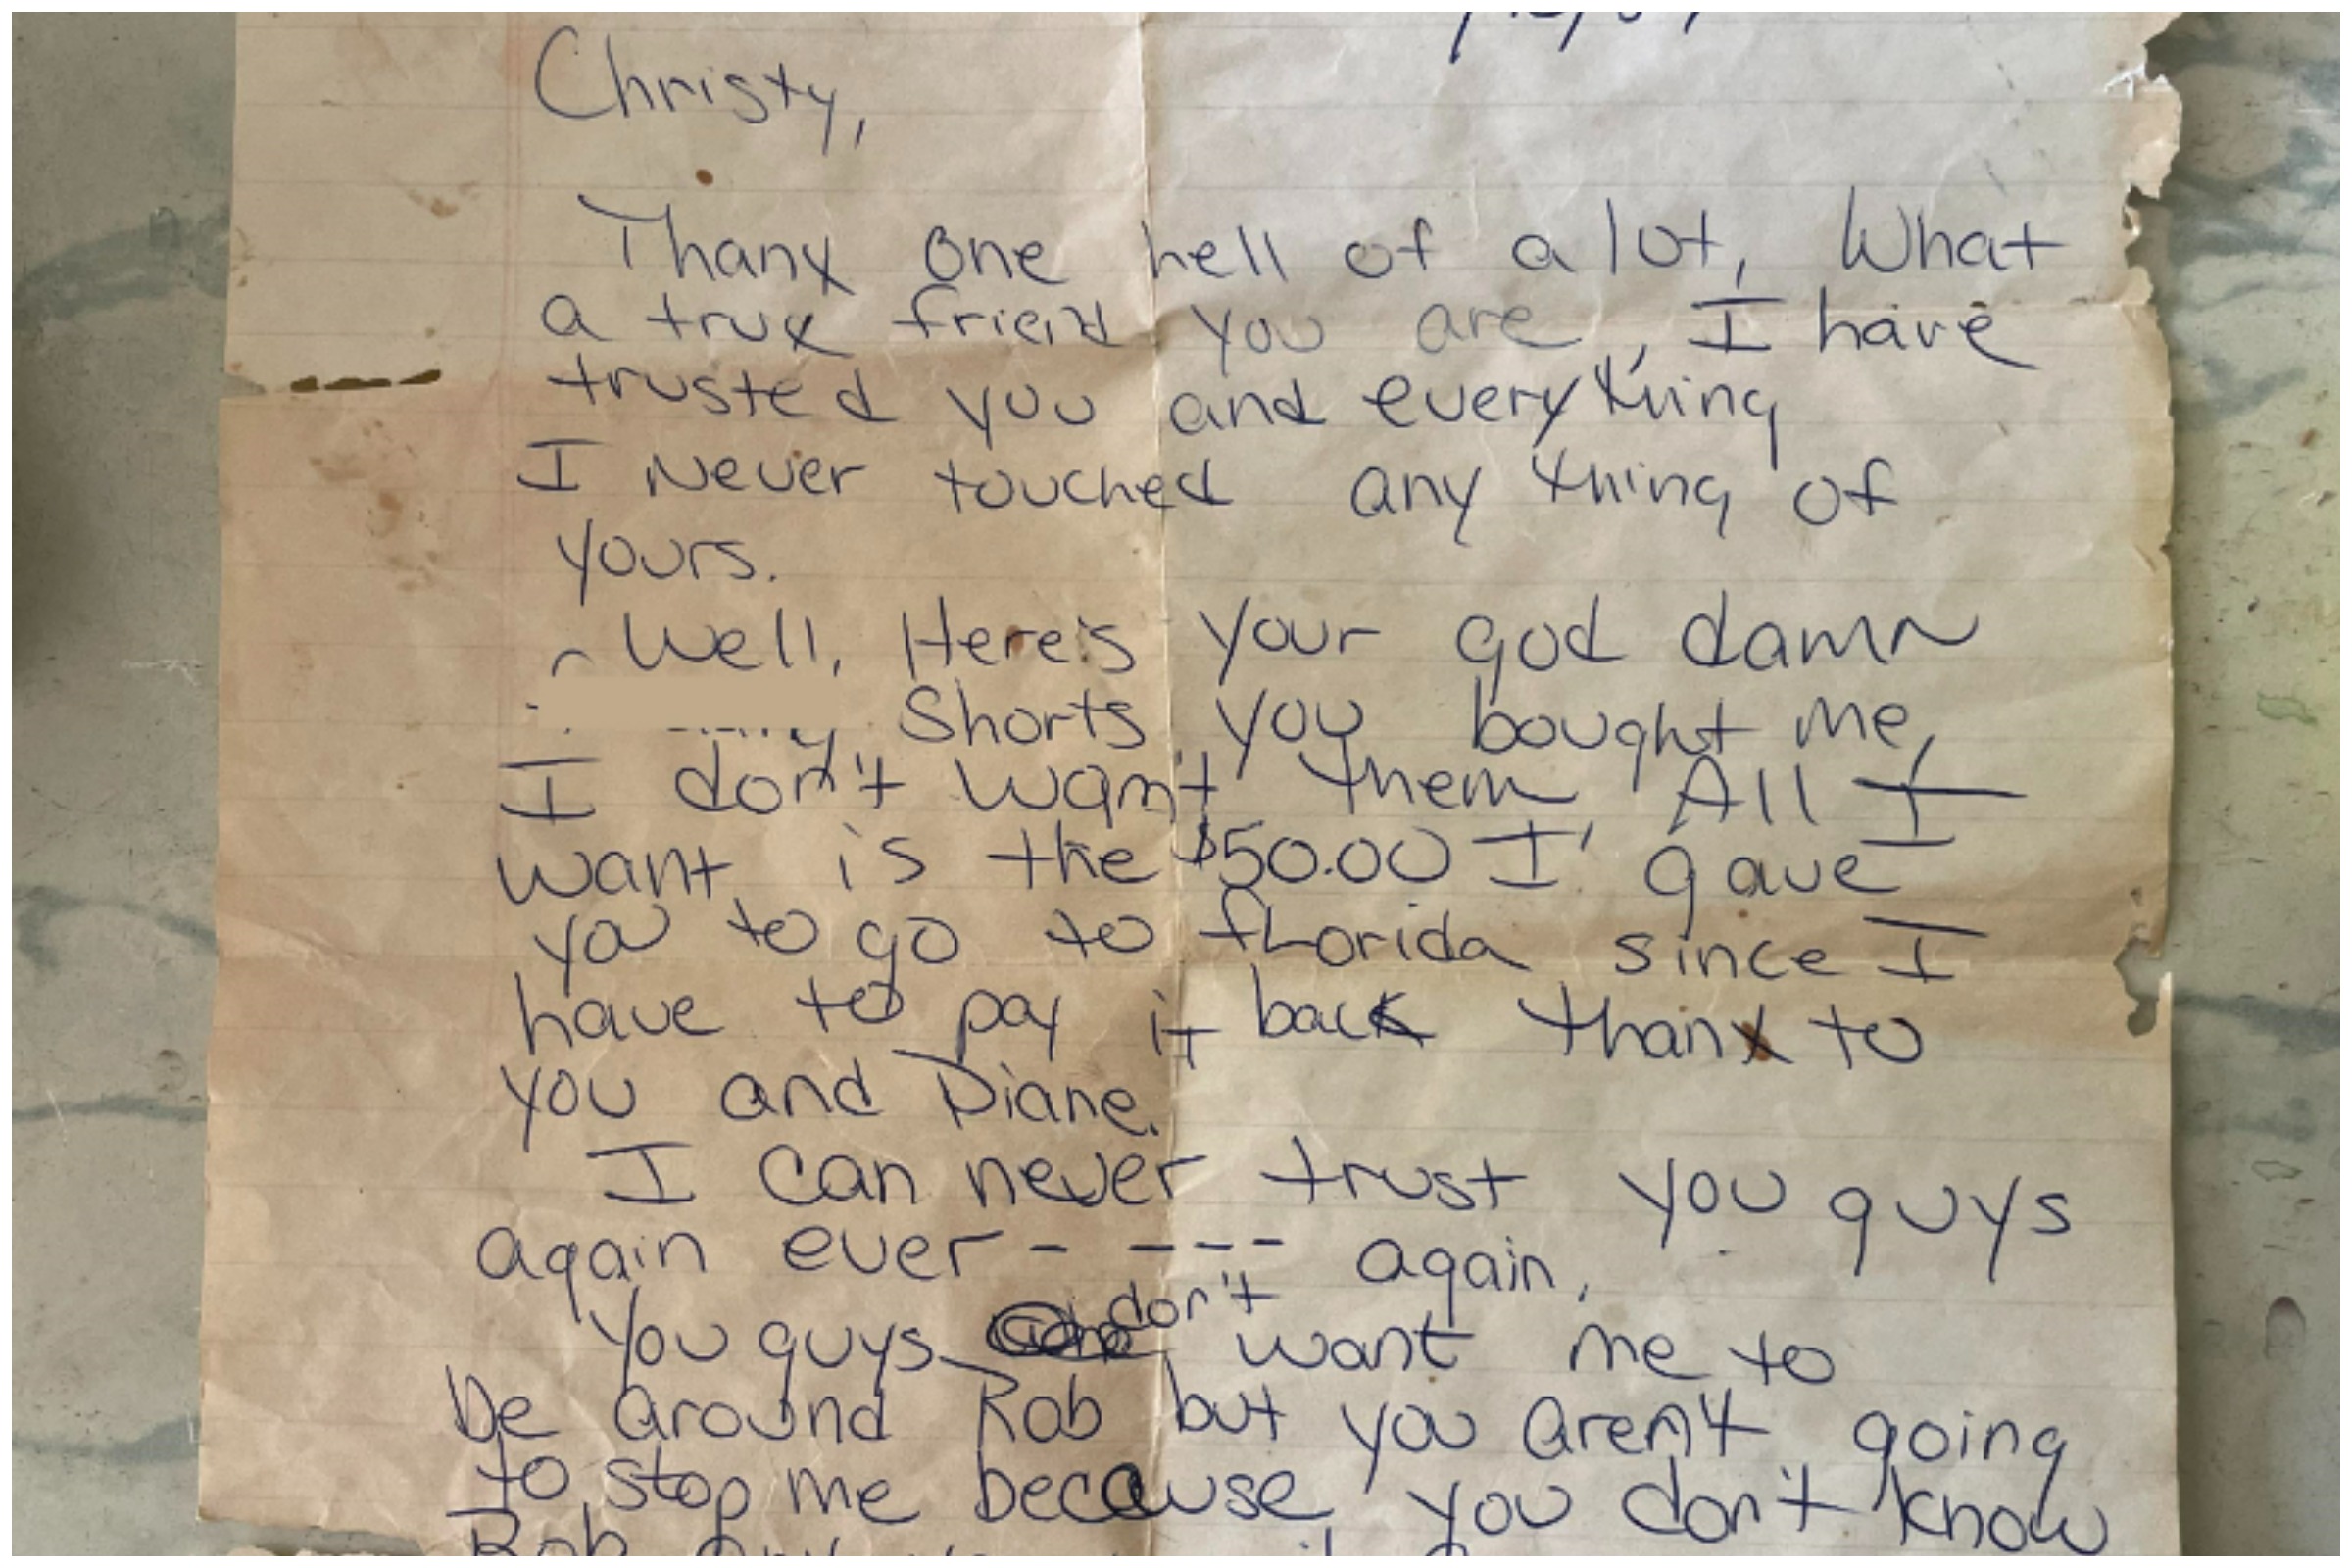 Christy,
Thanx one hell of a lot, What
a true friend you are, I have
trusted you and everything
I Never touched any thing of
yours.
Well, Here's your god damn
Shorts you bought me,
I don't want them, All I
want is the $50.00 I gave
you to go to fLorida since I
have to pay it back thanx to
you and Diane.
I can never trust you guys
again ever - - - - again,
You guys don't want me to
be around Rob but you aren't going
to stop me because you don't know
Rob